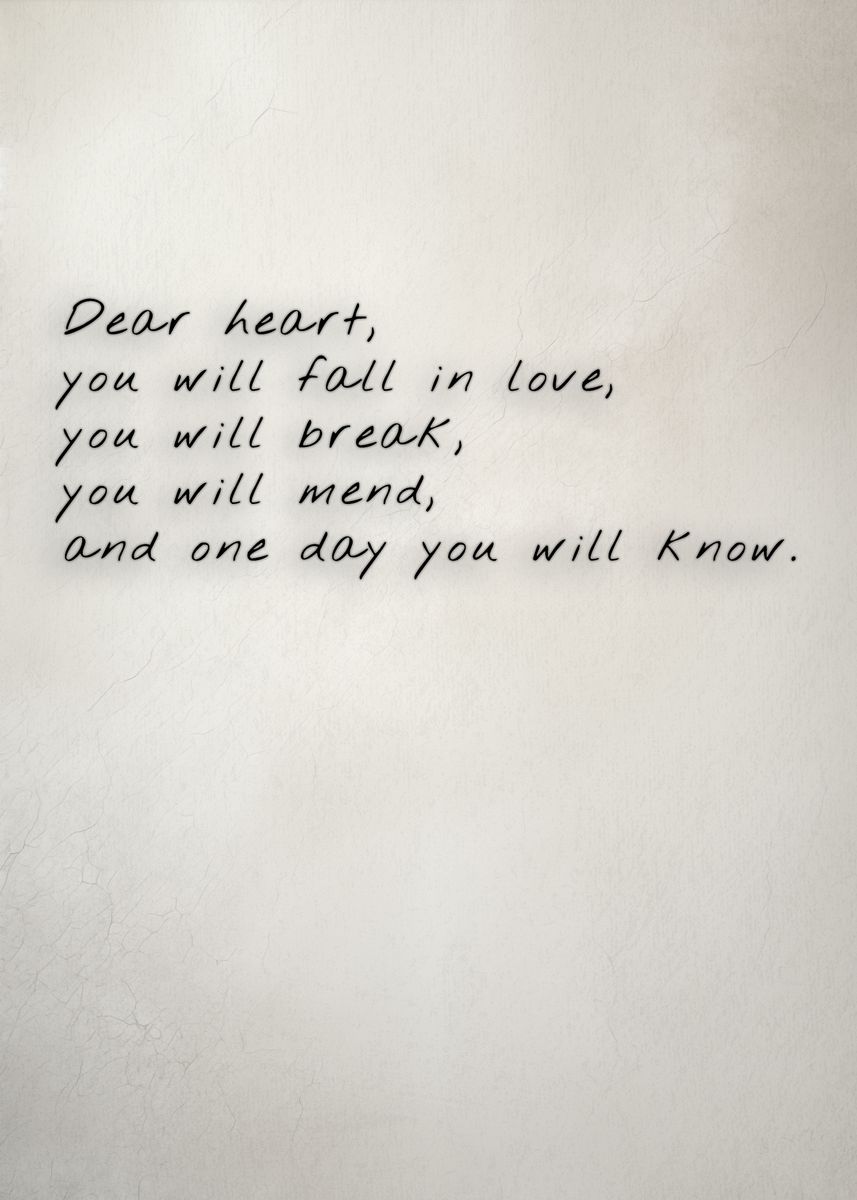 Dear heart,
you will fall in love,
you will break,
you will mend,
and one day you will know.